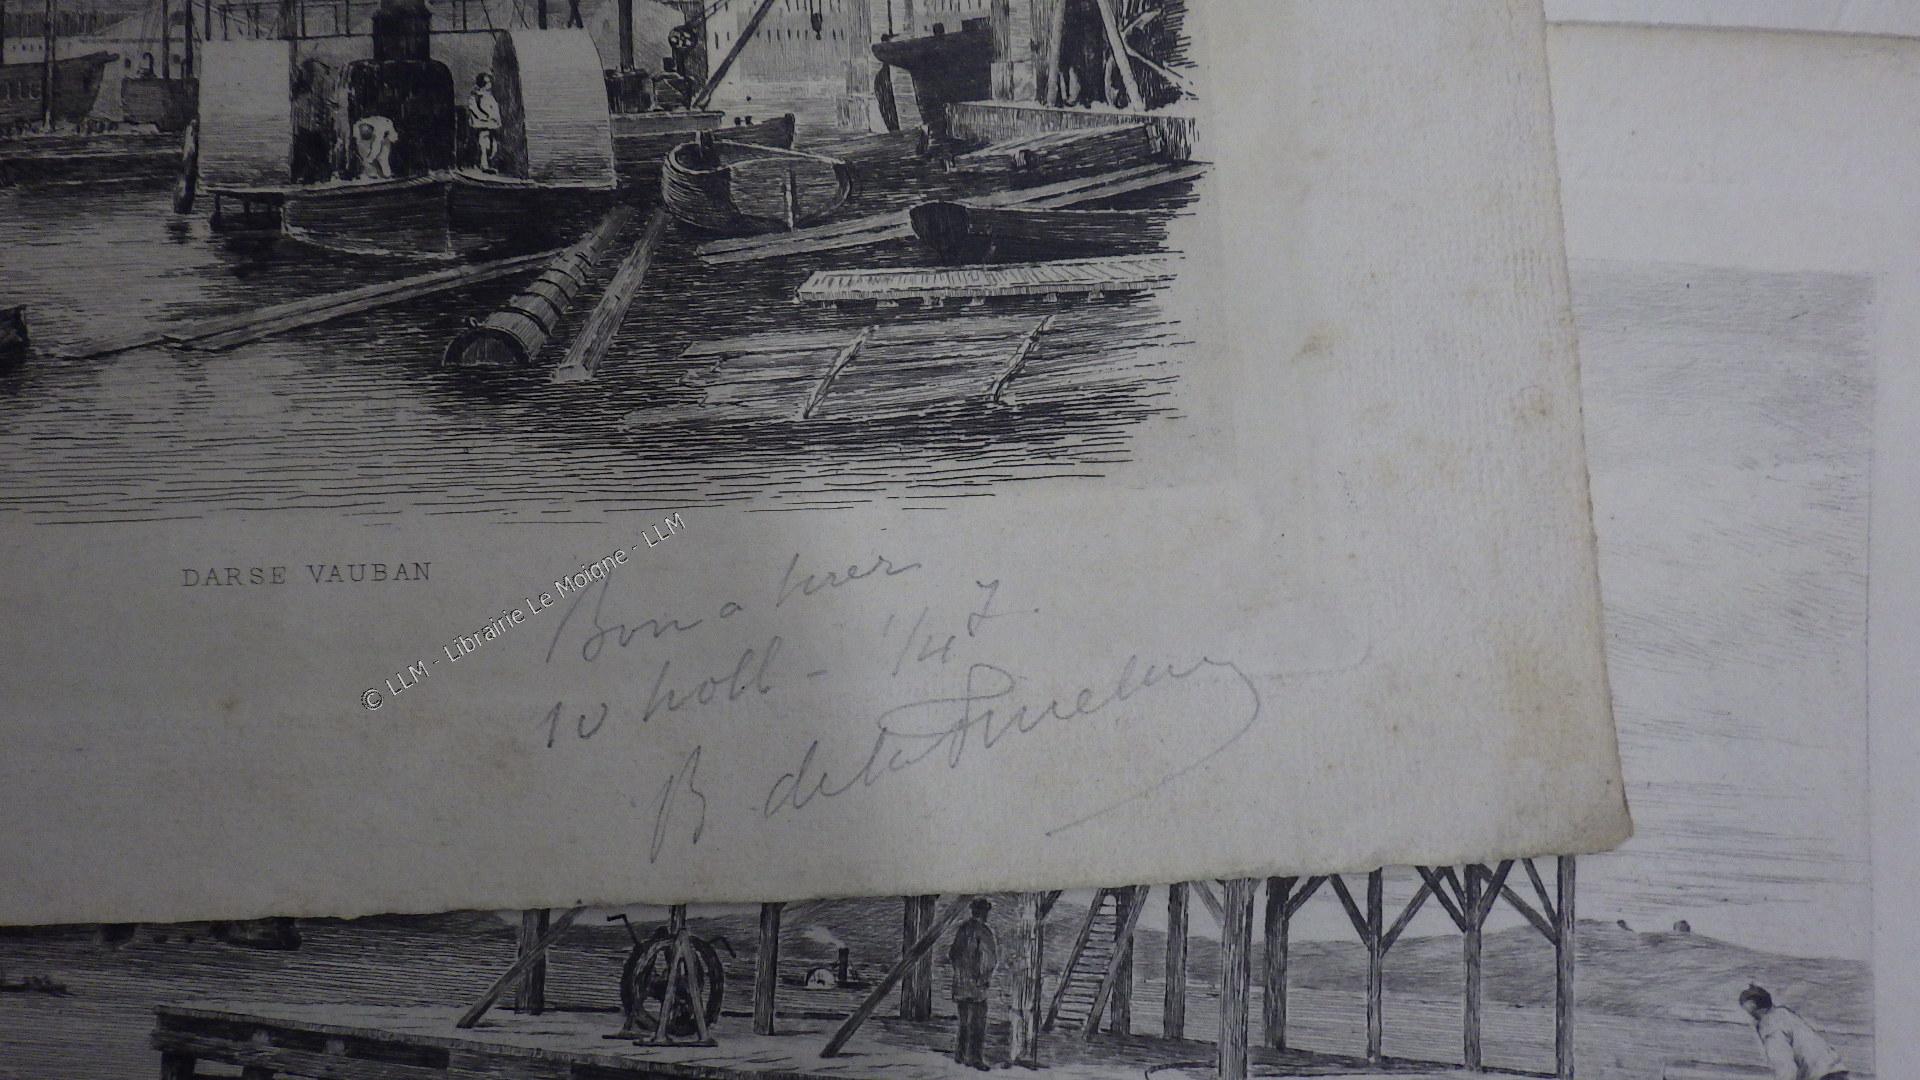 DARSE VAUBAN
© LLM - Librairie Le Moigne - LLM
Bon a tirer
10 holl - 1/4
B de la